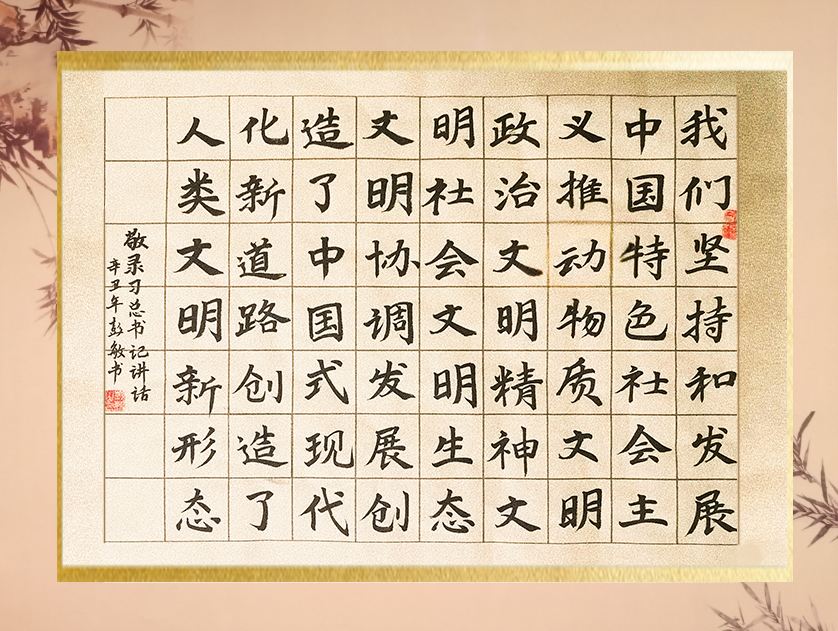 我们坚持和发展
中国特色社会主
义推动物质文明
政治文明精神文
明社会文明生态
文明协调发展创
造了中国式现代
化新道路创造了
人类文明新形态
敬录习总书记讲话
辛丑年彭敏书